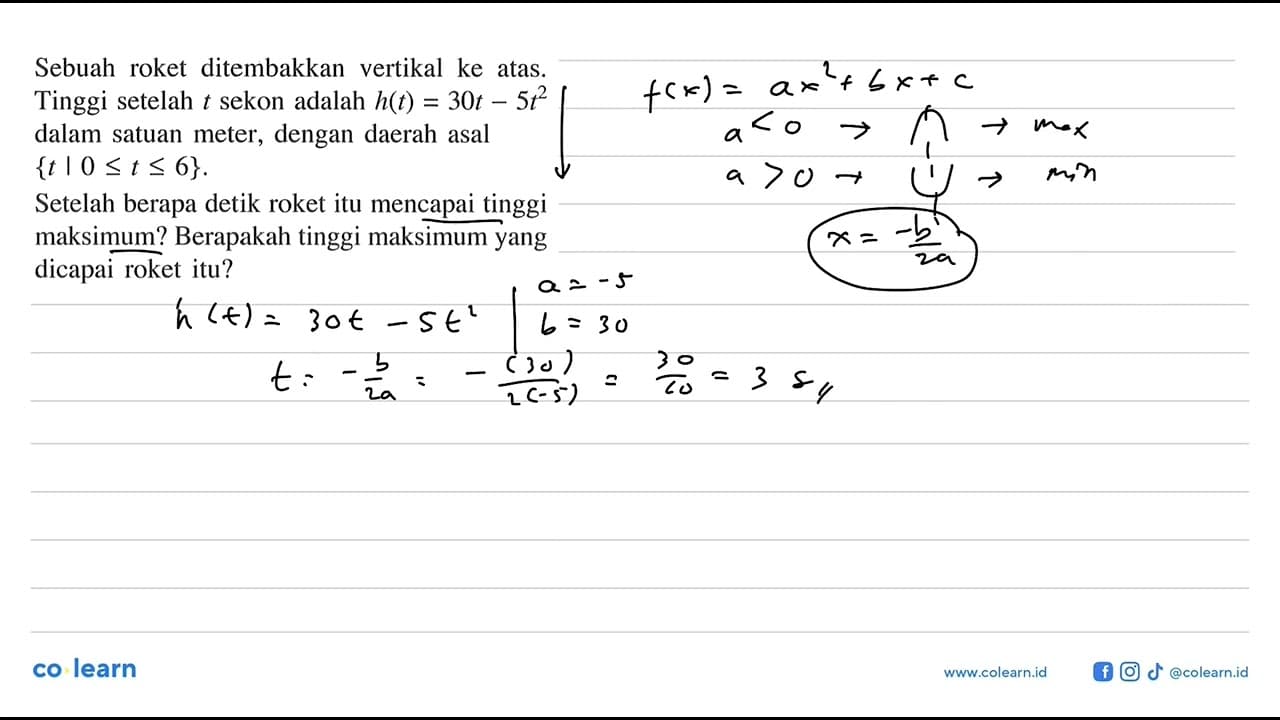 Sebuah roket ditembakkan vertikal ke atas.
Tinggi setelah t sekon adalah h(t) = 30t − 5t²
dalam satuan meter, dengan daerah asal
{t | 0 ≤ t ≤ 6}.
Setelah berapa detik roket itu mencapai tinggi
maksimum? Berapakah tinggi maksimum yang
dicapai roket itu?
f(x) = ax² + bx + c
a < 0 → ∩ → max
a > 0 → ∪ → min
x = -b/2a
h(t) = 30t − 5t²
a = -5
b = 30
t = -b/2a = -(30)/2(-5) = 30/10 = 3 s
co learn
www.colearn.id
@colearn.id